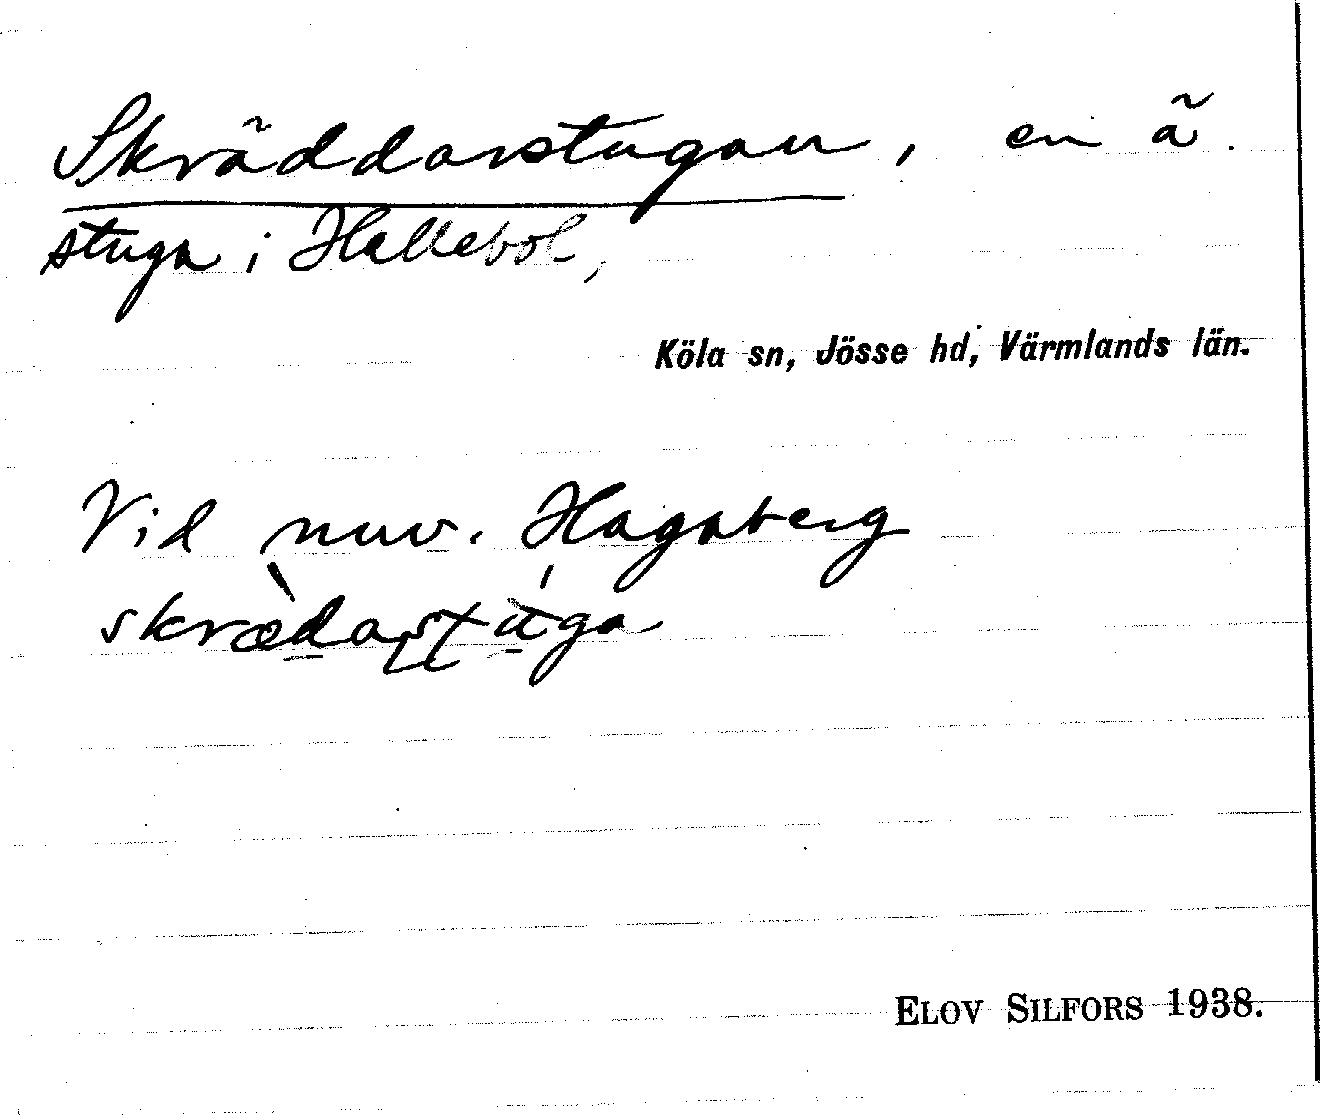 Skräddarstugan, en ä.
stuga i Hallebol,
Köla sn, Jösse hd, Värmlands län.
Vid nuv. Hagaberg
ELOV SILFORS 1938.